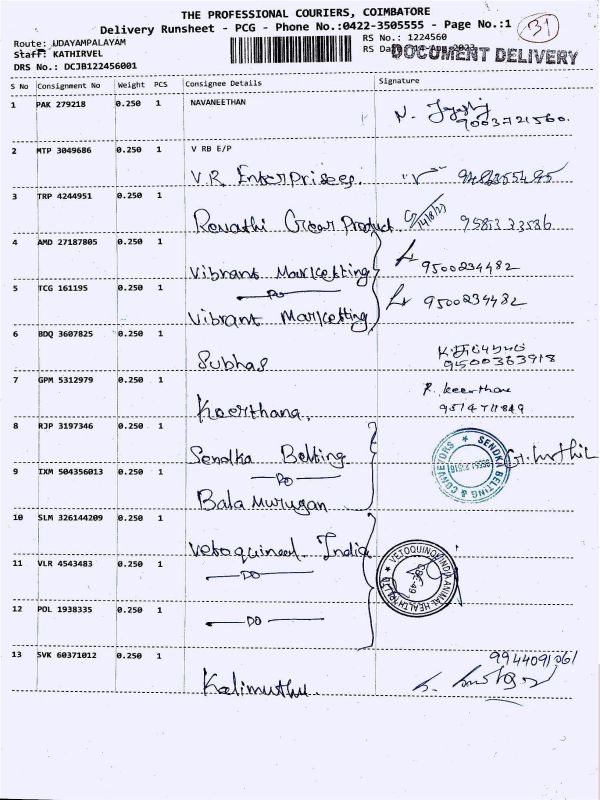 THE PROFESSIONAL COURIERS, COIMBATORE
Delivery Runsheet - PCG - Phone No.:0422-3505555 - Page No.:1
31
Route: UDAYAMPALAYAM
RS No.: 1224560
Staff: KATHIRVEL
RS Date: 14-Aug-2023
DOCUMENT DELIVERY
DRS No.: DCJB122456001
S No Consignment No Weight PCS Consignee Details Signature
1 PAK 279218 0.250 1 NAVANEETHAN
9003721560.
2 MTP 3049686 0.250 1 V RB E/P
V.R. Enterprises.
3 TRP 4244951 0.250 1
Revathi Gear Product 14/8/23
4 AMD 27187805 0.250 1
Vibrant Markcetting 9500234482
5 TCG 161195 0.250 1
DO
Vibrant Marketting 9500234482
6 BDQ 3607825 0.250 1
Subhas 9500363918
7 GPM 5312979 0.250 1
R. Keerthana
Keerthana.
8 RJP 3197346 0.250 1
Sendka Belting
SENDKA BELTING & CONVEYORS
9 IXM 504356013 0.250 1
DO
Bala Murugan
10 SLM 326144209 0.250 1
Vetoquinol India
11 VLR 4543483 0.250 1
DO
VETOQUINOL INDIA ANIMAL HEALTH
CBE-49
12 POL 1938335 0.250 1
DO
13 SVK 60371012 0.250 1
9944091061
Kalimuthu.